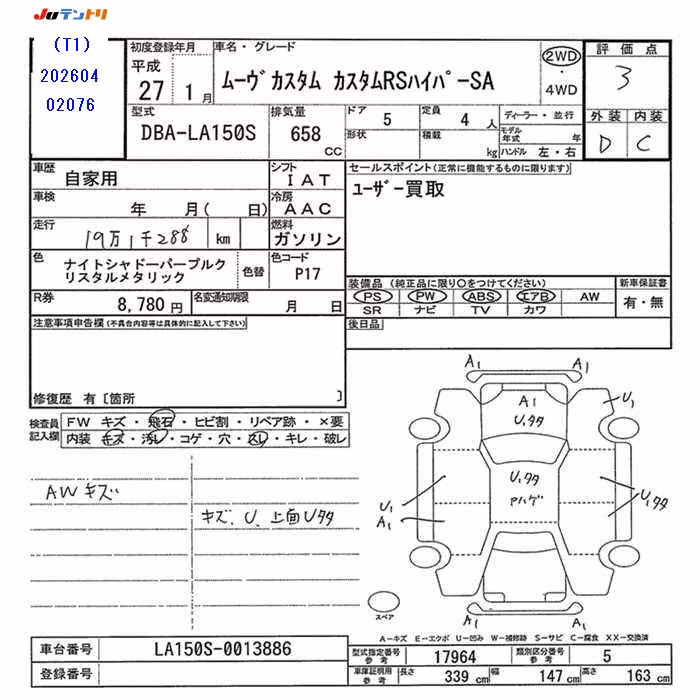 JUテントリ
(T1)
202604
02076
初度登録年月
平成
27 1月
車名・グレード
ムーヴカスタム カスタムRSハイパーSA
2WD
・
4WD
評価点
3
外装 内装
D C
型式
DBA-LA150S
排気量
658
CC
ドア
5
定員
4 人
形状
積載
kg
ディーラー・並行
モデル年式 年
ハンドル 左・右
車歴
自家用
シフト
IAT
車検
年 月( 日)
冷房
AAC
走行
19万1千288 km
燃料
ガソリン
色
ナイトシャドーパープルク
リスタルメタリック
色替
色コード
P17
R券
8,780 円
名変通知期限
月 日
セールスポイント(正常に機能するものに限ります)
ユーザー買取
装備品 (純正品に限り〇をつけてください) 新車保証書
PS PW ABS エアB AW
SR ナビ TV カワ
有・無
後日品
注意事項申告欄(不具合内容等は具体的に記入して下さい)
修復歴 有〔箇所 〕
検査員
記入欄
FW キズ・飛石・ヒビ割・リペア跡・×要
内装・キズ・汚レ・コゲ・穴・スレ・キレ・破レ
AWキズ
キズ、U、上面Uタタ
A1 A1
A1
Uタタ
U1
Uタタ
Pハゲ
U1
A1
U1
Uタタ
A1 A1
スペア
A-キズ E-エクボ U-凹み W-補修跡 S-サビ C-腐食 XX-交換済
車台番号 LA150S-0013886
登録番号
型式指定番号参考 17964
類別区分番号参考 5
車庫証明用参考 長さ 339 cm 幅 147 cm 高さ 163 cm